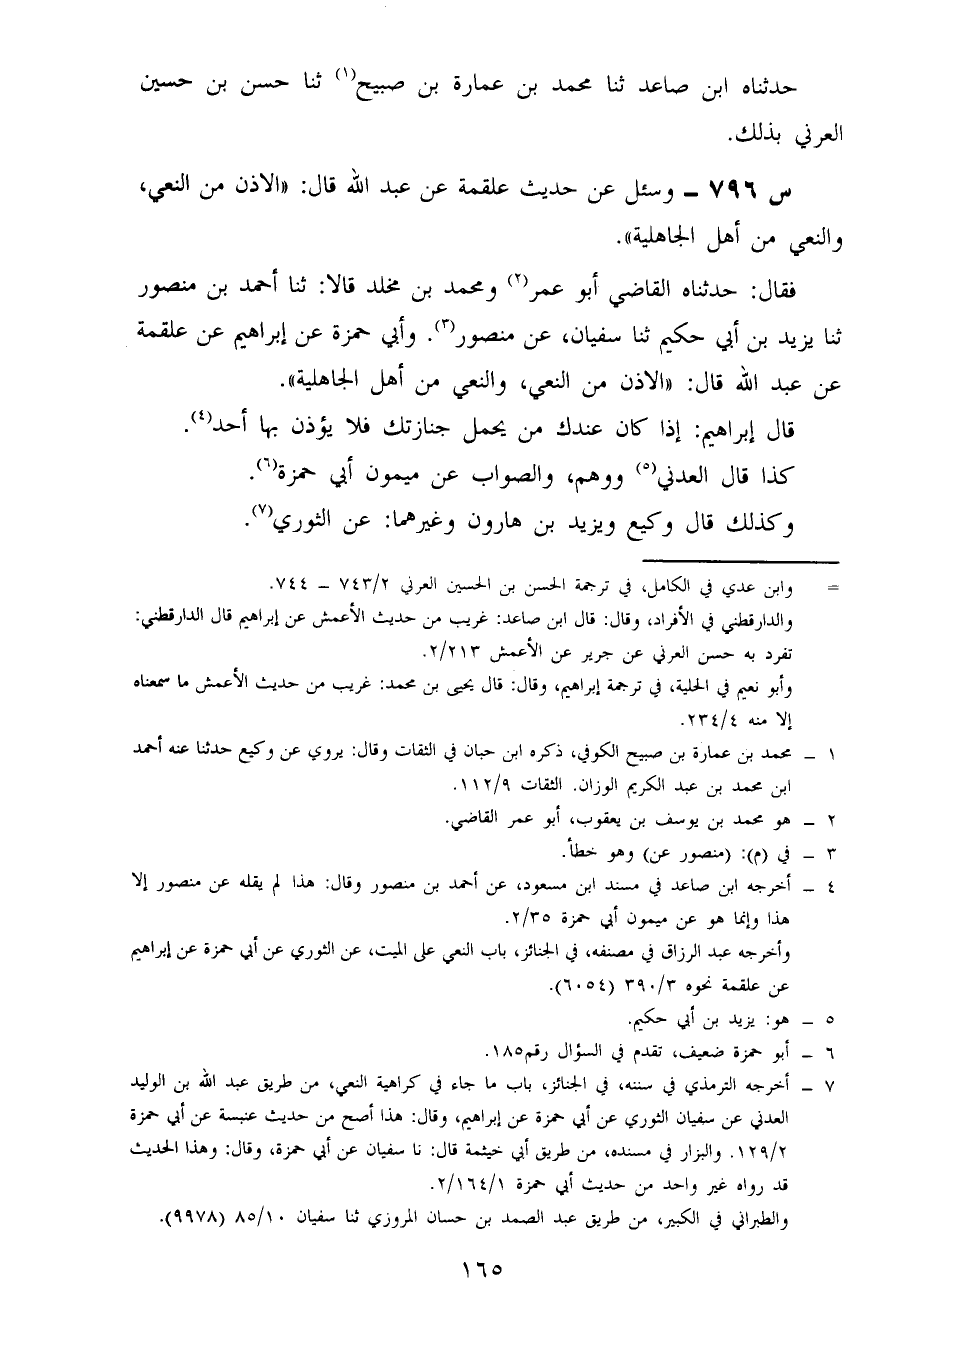 حدثناه ابن صاعد ثنا محمد بن عمارة بن صبيح(١) ثنا حسن بن حسين
العرني بذلك.
س ٧٩٦ ـ وسئل عن حديث علقمة عن عبد الله قال: «الاذن من النعي،
والنعي من أهل الجاهلية».
فقال: حدثناه القاضي أبو عمر(٢) ومحمد بن مخلد قالا: ثنا أحمد بن منصور
ثنا يزيد بن أبي حكيم ثنا سفيان، عن منصور(٣). وأبي حمزة عن إبراهيم عن علقمة
عن عبد الله قال: «الاذن من النعي، والنعي من أهل الجاهلية».
قال إبراهيم: إذا كان عندك من يحمل جنازتك فلا يؤذن بها أحد(٤).
كذا قال العدني(٥) ووهم، والصواب عن ميمون أبي حمزة(٦).
وكذلك قال وكيع ويزيد بن هارون وغيرهما: عن الثوري(٧).
= وابن عدي في الكامل، في ترجمة الحسن بن الحسين العرني ٧٤٣/٢ ـ ٧٤٤.
والدارقطني في الأفراد، وقال: قال ابن صاعد: غريب من حديث الأعمش عن إبراهيم قال الدارقطني:
تفرد به حسن العرني عن جرير عن الأعمش ٢/٢١٣.
وأبو نعيم في الحلية، في ترجمة إبراهيم، وقال: قال يحيى بن محمد: غريب من حديث الأعمش ما سمعناه
إلا منه ٢٣٤/٤.
١ ـ محمد بن عمارة بن صبيح الكوفي، ذكره ابن حبان في الثقات وقال: يروي عن وكيع حدثنا عنه أحمد
ابن محمد بن عبد الكريم الوزان. الثقات ١١٢/٩.
٢ ـ هو محمد بن يوسف بن يعقوب، أبو عمر القاضي.
٣ ـ في (م): (منصور عن) وهو خطأ.
٤ ـ أخرجه ابن صاعد في مسند ابن مسعود، عن أحمد بن منصور وقال: هذا لم يقله عن منصور إلا
هذا وإنما هو عن ميمون أبي حمزة ٢/٣٥.
وأخرجه عبد الرزاق في مصنفه، في الجنائز، باب النعي على الميت، عن الثوري عن أبي حمزة عن إبراهيم
عن علقمة نحوه ٣٩٠/٣ (٦٠٥٤).
٥ ـ هو: يزيد بن أبي حكيم.
٦ ـ أبو حمزة ضعيف، تقدم في السؤال رقم١٨٥.
٧ ـ أخرجه الترمذي في سننه، في الجنائز، باب ما جاء في كراهية النعي، من طريق عبد الله بن الوليد
العدني عن سفيان الثوري عن أبي حمزة عن إبراهيم، وقال: هذا أصح من حديث عنبسة عن أبي حمزة
١٢٩/٢. والبزار في مسنده، من طريق أبي خيثمة قال: نا سفيان عن أبي حمزة، وقال: وهذا الحديث
قد رواه غير واحد من حديث أبي حمزة ٢/١٦٤/١.
والطبراني في الكبير، من طريق عبد الصمد بن حسان المروزي ثنا سفيان ٨٥/١٠ (٩٩٧٨).
١٦٥